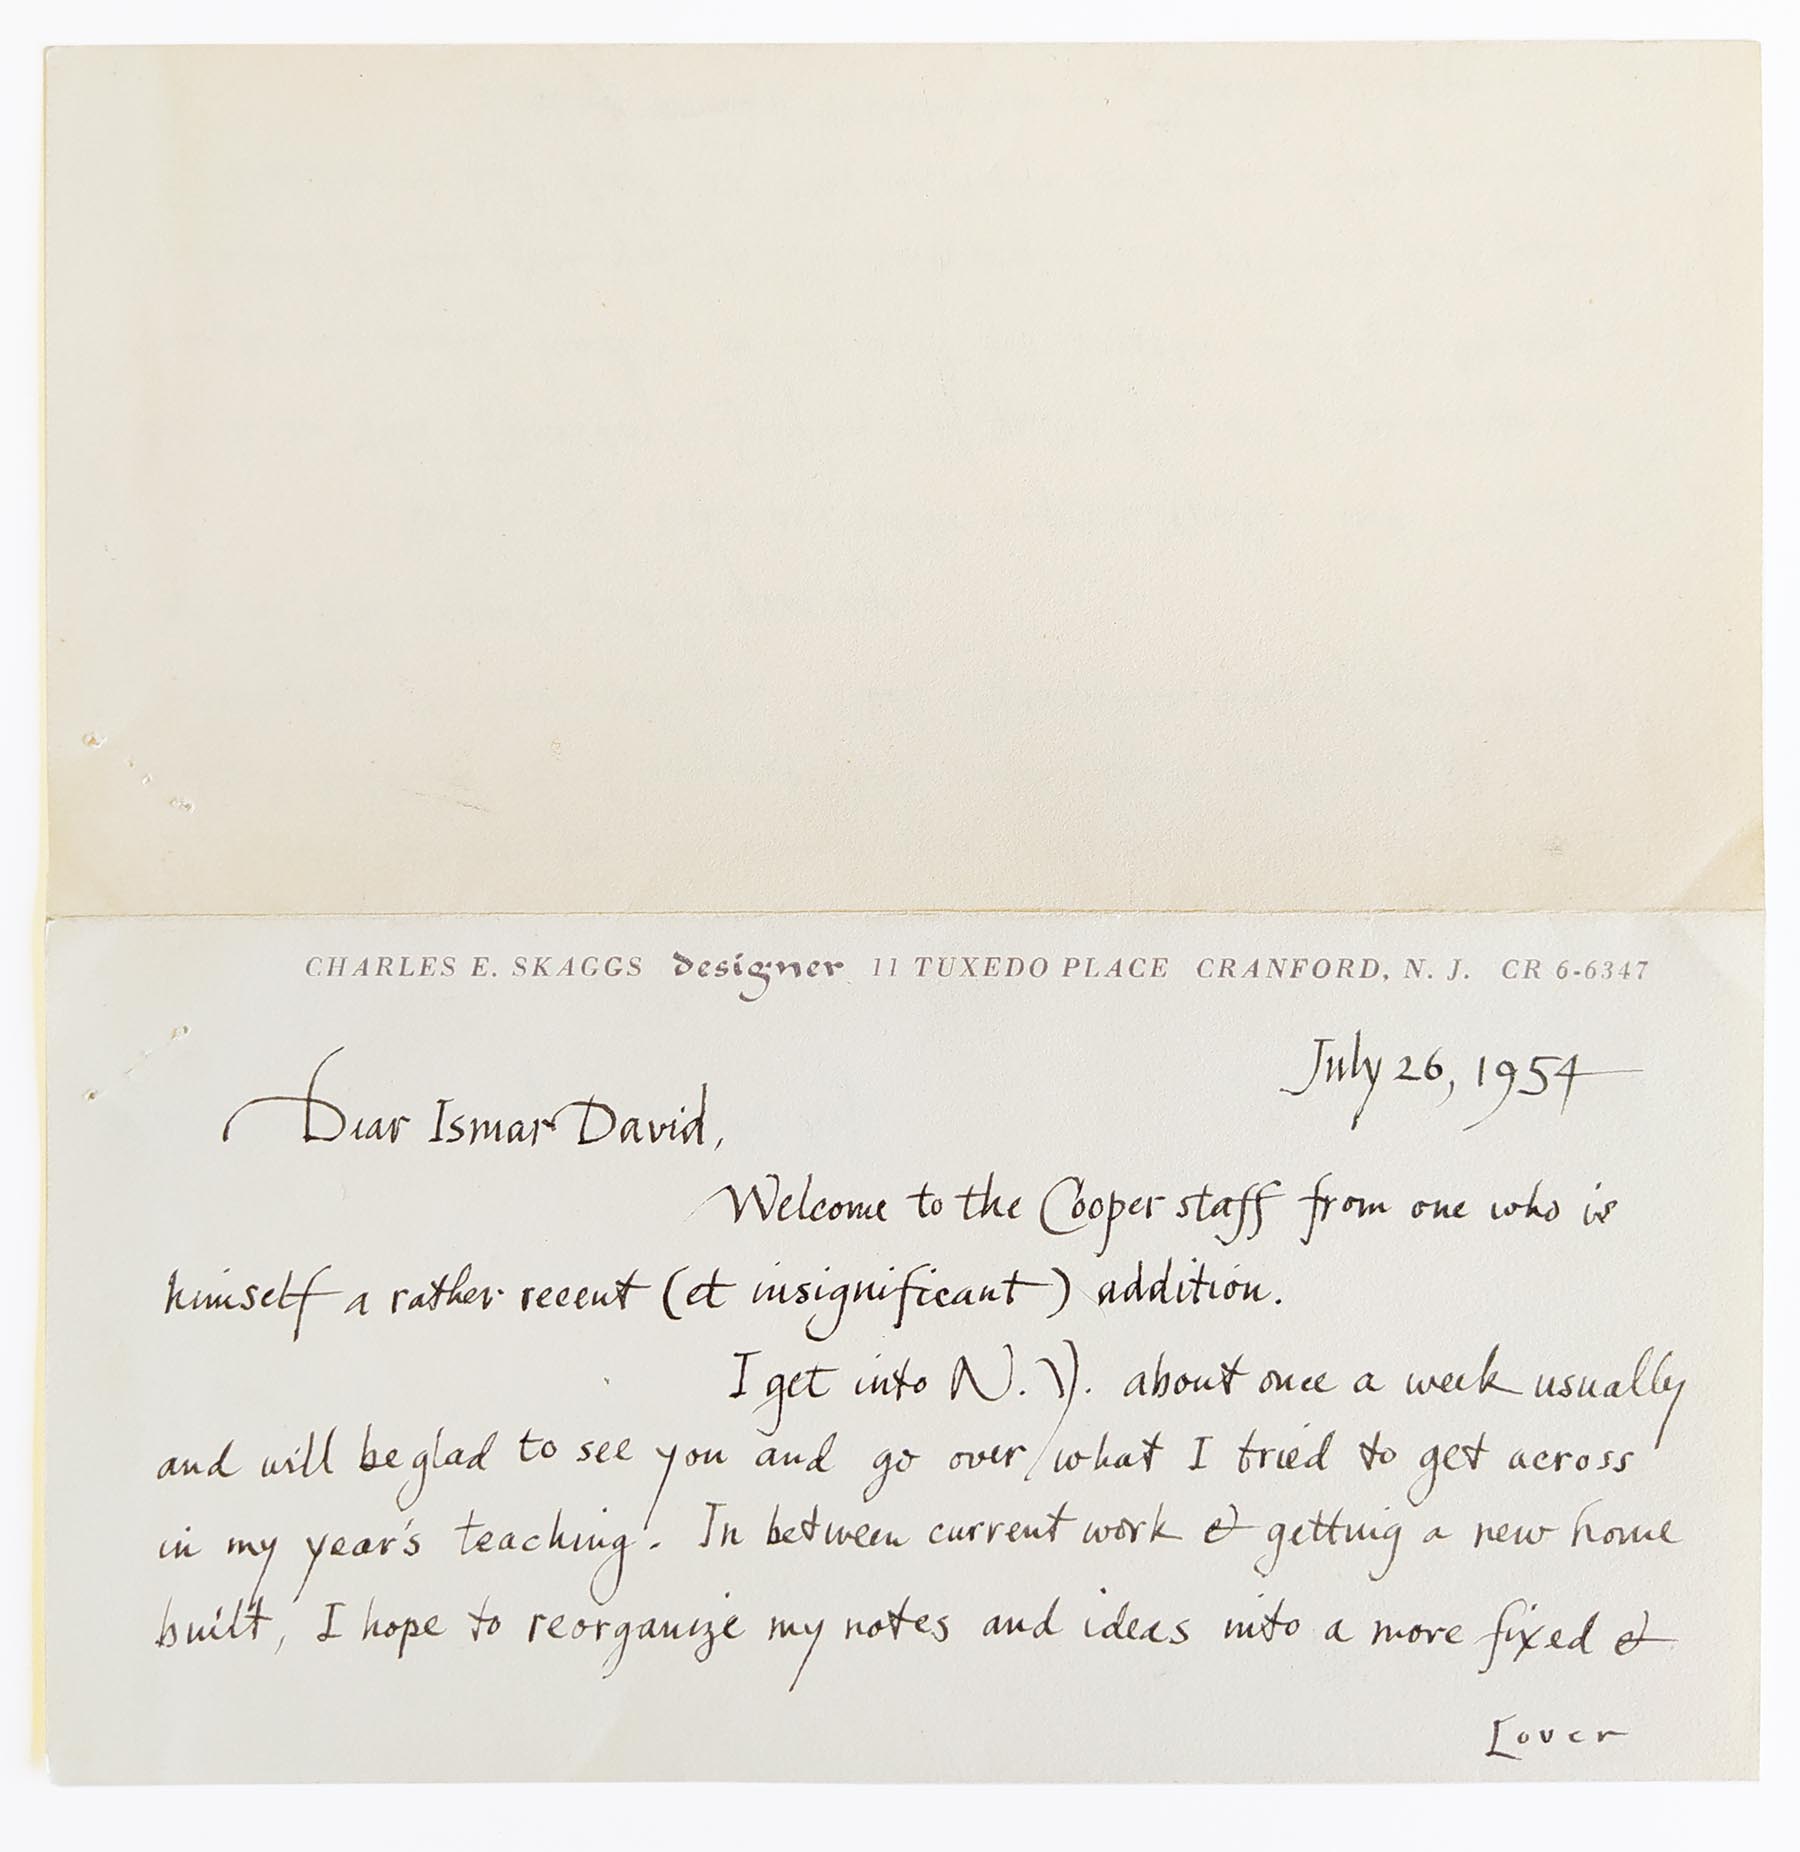 CHARLES E. SKAGGS designer 11 TUXEDO PLACE CRANFORD, N. J. CR 6-6347
July 26, 1954
Dear Ismar David,
Welcome to the Cooper staff from one who is
himself a rather recent (et insignificant) addition.
I get into N.Y. about once a week usually
and will be glad to see you and go over what I tried to get across
in my year's teaching. In between current work & getting a new home
built, I hope to reorganize my notes and ideas into a more fixed &
[over